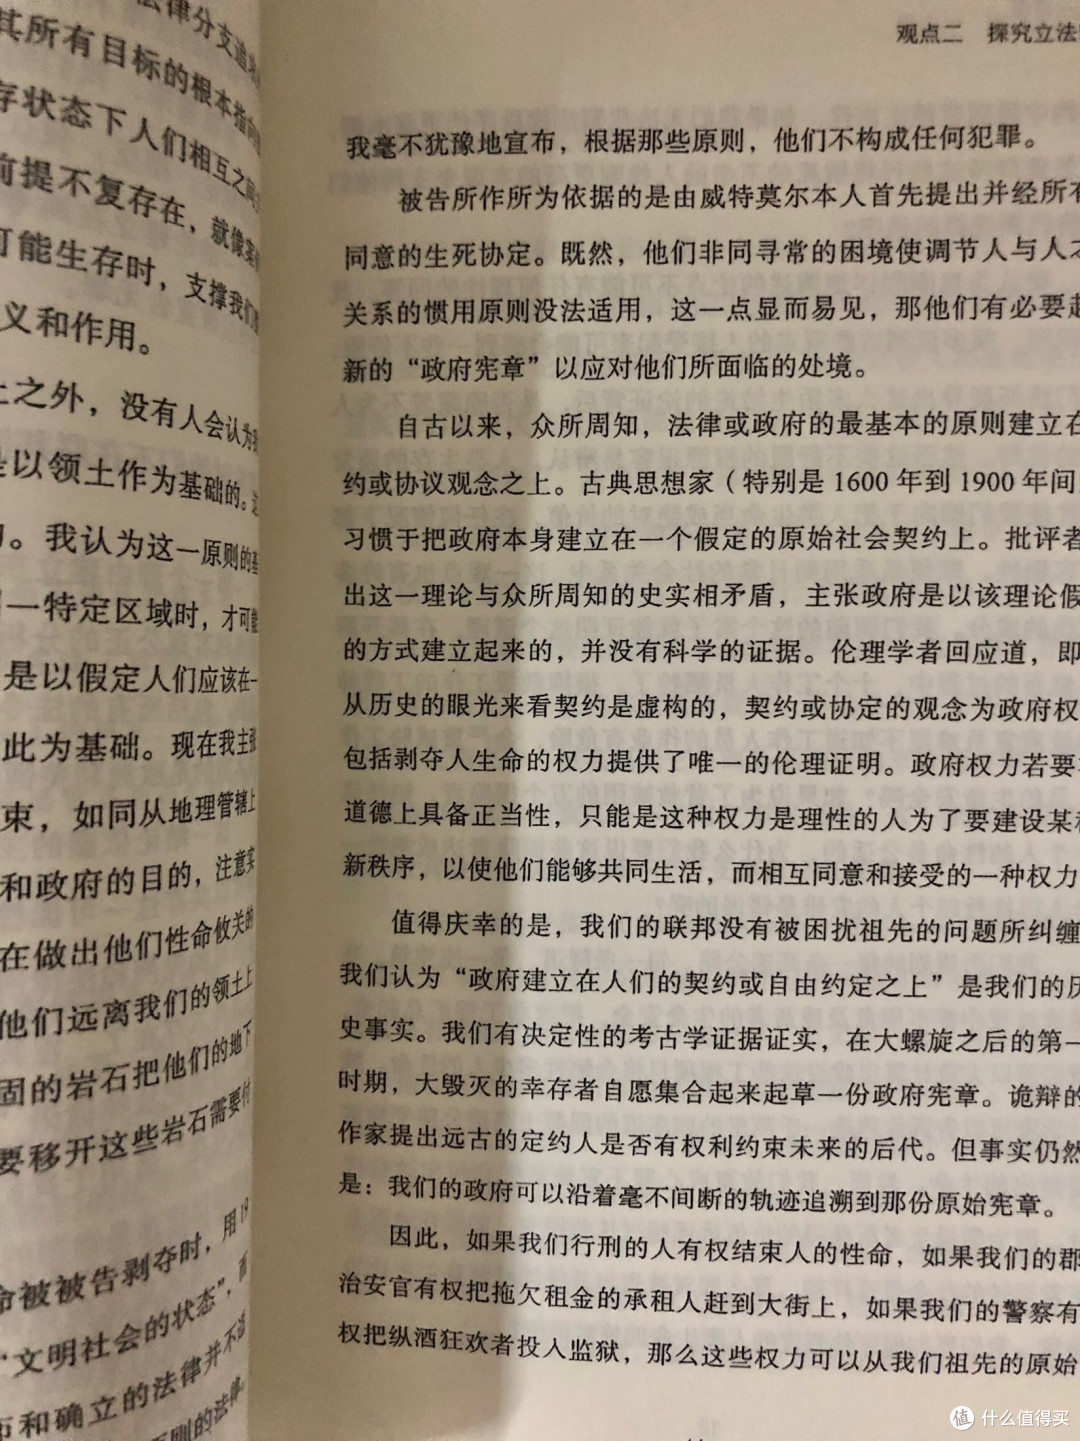 法律分支追
其所有目标的根本指
存状态下人们相互之间
前提不复存在，就像案
可能生存时，支撑我们
义和作用。
上之外，没有人会认为我
是以领土作为基础的。这
的。我认为这一原则的基
同一特定区域时，才可能
是以假定人们应该在一
此为基础。现在我主张
束，如同从地理管辖上
和政府的目的，注意实
在做出他们性命攸关的
他们远离我们的领土上
固的岩石把他们的地下
要移开这些岩石需要付
命被被告剥夺时，用19
“文明社会的状态”，而
布和确立的法律并不适
原则的法律
观点二 探究立法
我毫不犹豫地宣布，根据那些原则，他们不构成任何犯罪。
被告所作所为依据的是由威特莫尔本人首先提出并经所有
同意的生死协定。既然，他们非同寻常的困境使调节人与人之
关系的惯用原则没法适用，这一点显而易见，那他们有必要起
新的“政府宪章”以应对他们所面临的处境。
自古以来，众所周知，法律或政府的最基本的原则建立在
约或协议观念之上。古典思想家（特别是1600年到1900年间
习惯于把政府本身建立在一个假定的原始社会契约上。批评者
出这一理论与众所周知的史实相矛盾，主张政府是以该理论假
的方式建立起来的，并没有科学的证据。伦理学者回应道，即
从历史的眼光来看契约是虚构的，契约或协定的观念为政府权
包括剥夺人生命的权力提供了唯一的伦理证明。政府权力若要
道德上具备正当性，只能是这种权力是理性的人为了要建设某种
新秩序，以使他们能够共同生活，而相互同意和接受的一种权力
值得庆幸的是，我们的联邦没有被困扰祖先的问题所纠缠
我们认为“政府建立在人们的契约或自由约定之上”是我们的历
史事实。我们有决定性的考古学证据证实，在大螺旋之后的第一
时期，大毁灭的幸存者自愿集合起来起草一份政府宪章。诡辩的
作家提出远古的定约人是否有权利约束未来的后代。但事实仍然
是：我们的政府可以沿着毫不间断的轨迹追溯到那份原始宪章。
因此，如果我们行刑的人有权结束人的性命，如果我们的郡
治安官有权把拖欠租金的承租人赶到大街上，如果我们的警察有
权把纵酒狂欢者投入监狱，那么这些权力可以从我们祖先的原始
值 什么值得买